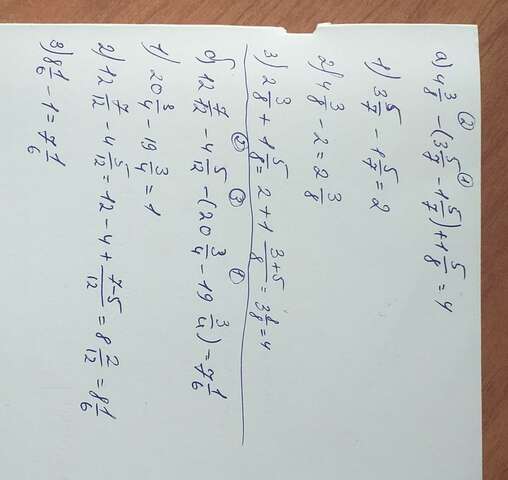 а) 4 3/8 - (3 5/7 - 1 5/7) + 1 5/8 = 4
1) 3 5/7 - 1 5/7 = 2
2) 4 3/8 - 2 = 2 3/8
3) 2 3/8 + 1 5/8 = 2 + 1 3+5/8 = 3 8/8 = 4
б) 12 7/12 - 4 5/12 - (20 3/4 - 19 3/4) = 7 1/6
1) 20 3/4 - 19 3/4 = 1
2) 12 7/12 - 4 5/12 = 12 - 4 + 7-5/12 = 8 2/12 = 8 1/6
3) 8 1/6 - 1 = 7 1/6